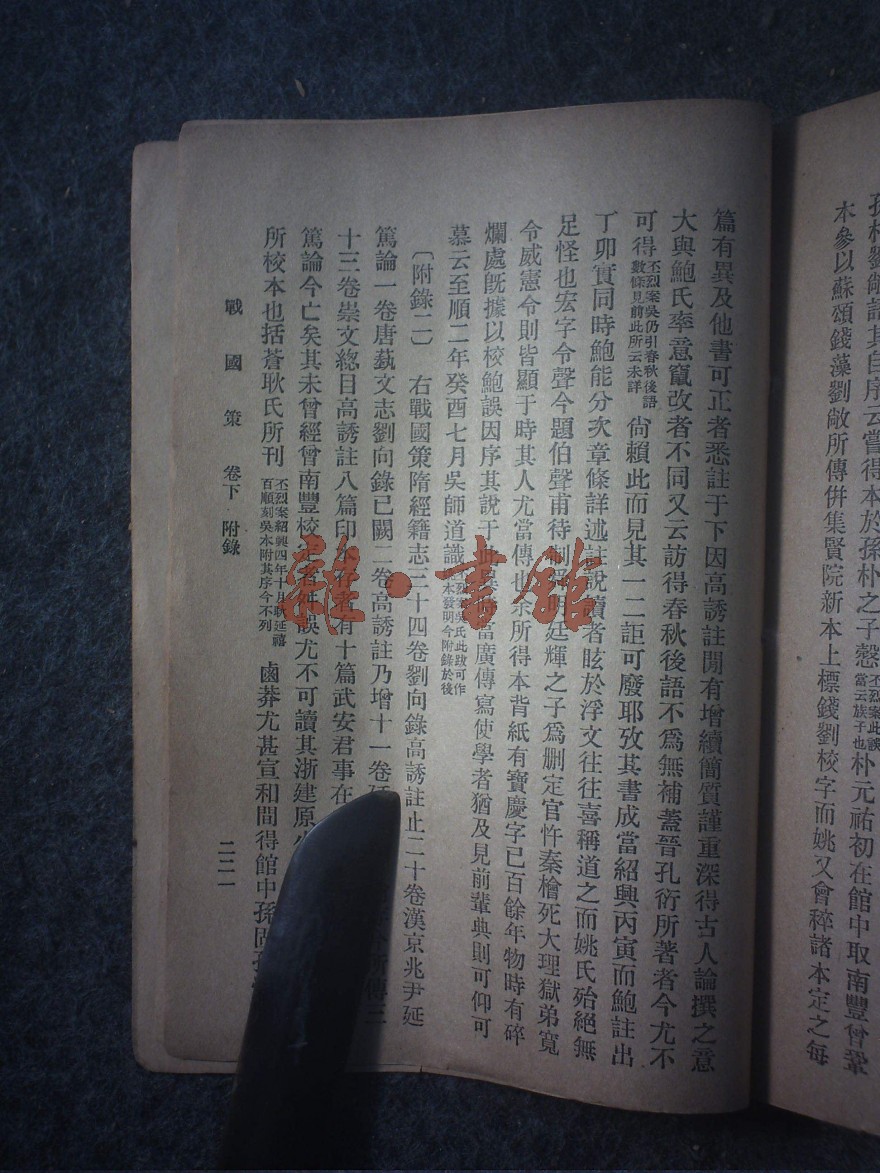 孫朴劉敏諸其自序云嘗得本於孫朴之子慤丕烈案此誤當云族子也朴元祐初在館中取南豐曾鞏
本參以蘇頌錢藻劉敞所傳併集賢院新本上標錢劉校字而姚又會稡諸本定之每
篇有異及他書可正者悉註于下因高誘註閒有增續簡質謹重深得古人論撰之意
大與鮑氏率意竄改者不同又云訪得春秋後語不爲無補蓋晉孔衍所著者今尤不
可得丕烈案吳仍引春秋後語數條見前此所云未詳尙賴此而見其一二詎可廢耶攷其書成當紹興丙寅而鮑註出
丁卯實同時鮑能分次章條詳述註說讀者眩於浮文往往喜稱道之而姚氏殆絕無
足怪也宏字令聲今題伯聲甫待制舜明廷輝之子爲刪定官忤秦檜死大理獄弟寬
令威憲令則皆顯于時其人尤當傳也余所得本背紙有寶慶字已百餘年物時有碎
爛處旣據以校鮑誤因序其說于此異當廣傳寫使學者猶及見前輩典則可仰可
慕云至順二年癸酉七月吳師道識烈案吳氏此跋可作本發明今附錄於後
〔附錄二〕 右戰國策隋經籍志三十四卷劉向錄高誘註止二十卷漢京兆尹延
篤論一卷唐藝文志劉向錄已闕二卷高誘註乃增十一卷延
十三卷崇文總目高誘註八篇印本存者有十篇武安君事在
篤論今亡矣其未曾經曾南豐校定者舛誤尤不可讀其浙建原小
所校本也括蒼耿氏所刊丕烈案紹興四年十月耿延禧百順刻吳本附其序今不列鹵莽尤甚宣和間得館中孫固孫
戰國策 卷下 附錄
二二一
雜·書館